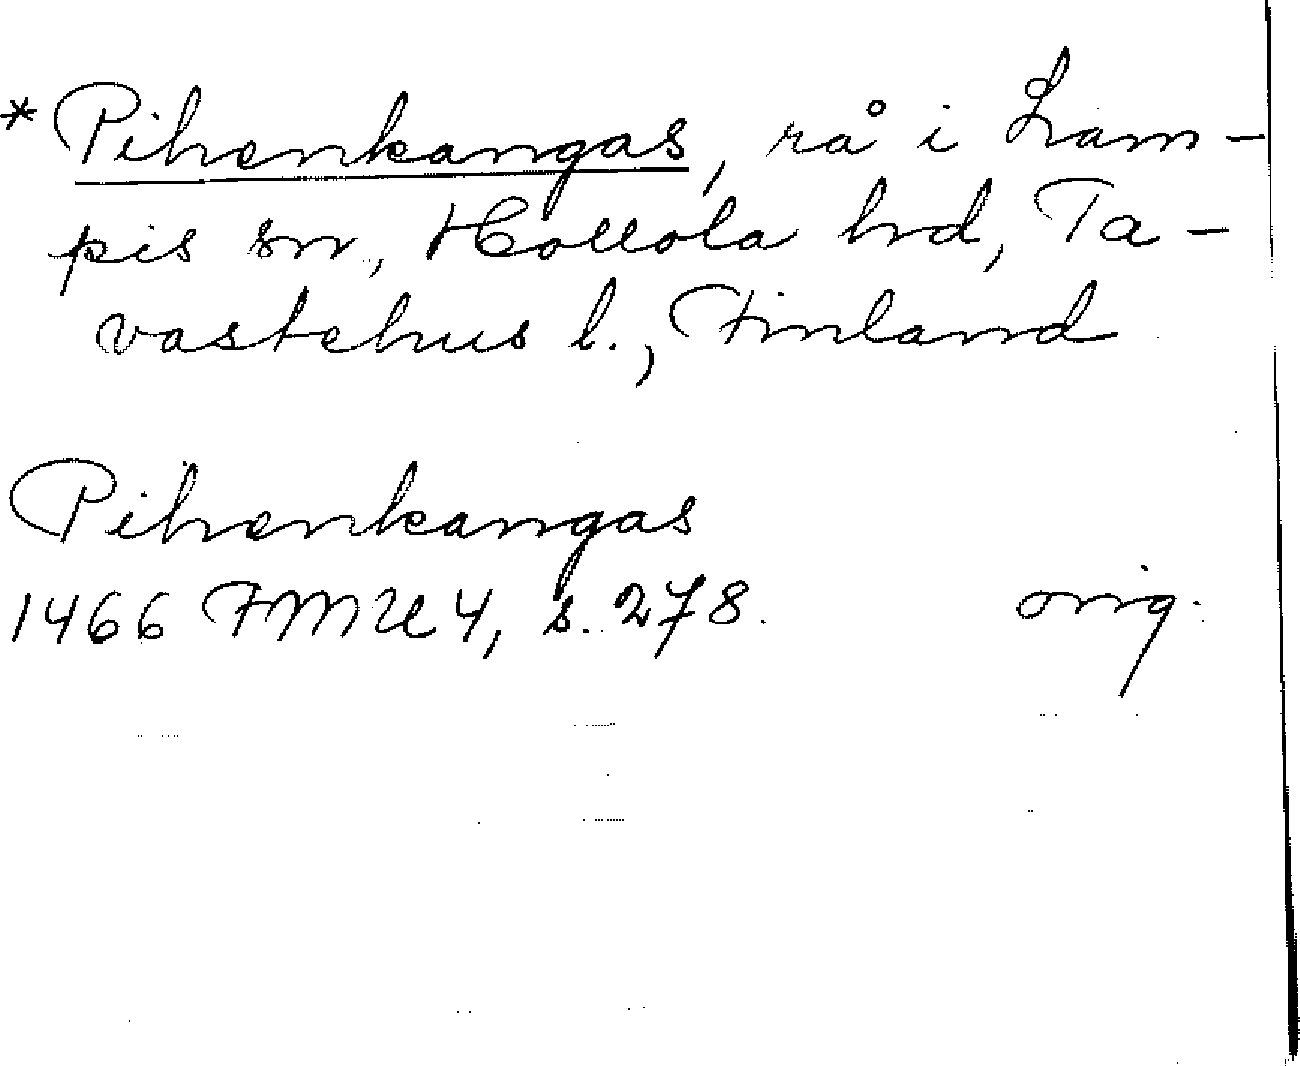 * Pihenkangas, rå i Lam-
pis sn, Hollola hd, Ta-
vastehus l., Finland
Pihenkangas
1466 FMU 4, s. 278. orig.